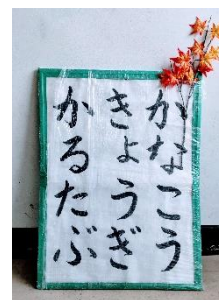 かなこう
きょうぎ
かるたぶ